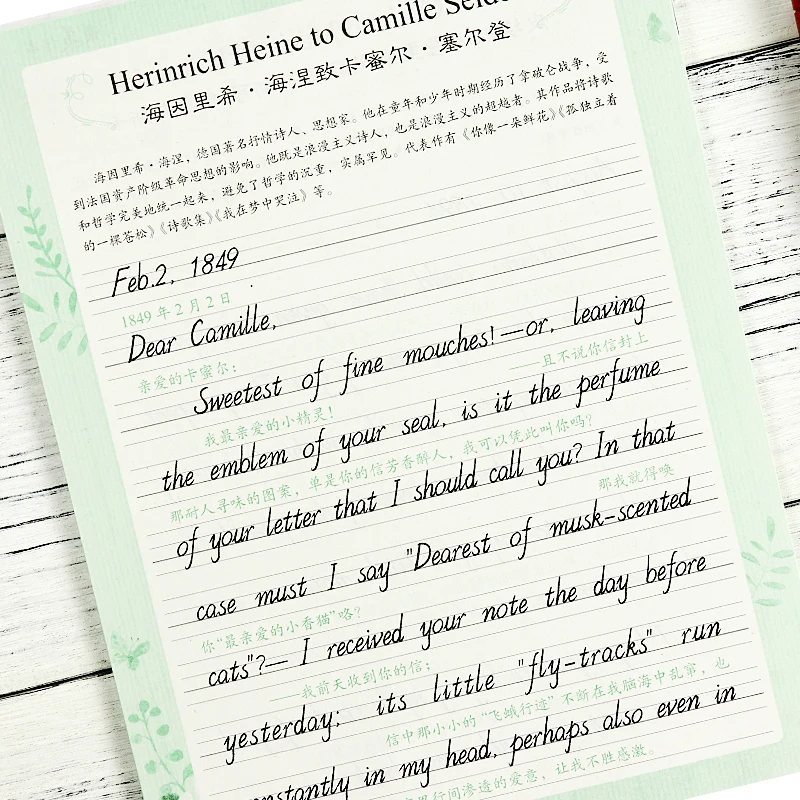 Herinrich Heine to Camille
海因里希·海涅致卡蜜尔·塞尔登
海因里希·海涅，德国著名抒情诗人、思想家。他在童年和少年时期经历了拿破仑战争，受
到法国资产阶级革命思想的影响。他既是浪漫主义诗人，也是浪漫主义的超越者。其作品将诗歌
和哲学完美地统一起来，避免了哲学的沉重，实属罕见。代表作有《你像一朵鲜花》《孤独立着
的一棵苍松》《诗歌集》《我在梦中哭泣》等。
Feb.2, 1849
1849年2月2日
Dear Camille,
亲爱的卡蜜尔：
Sweetest of fine mouches!—or, leaving
我最亲爱的小精灵！ ——且不说你信封上
the emblem of your seal, is it the perfume
那耐人寻味的图案，单是你的信芳香醉人，我可以凭此叫你吗？
of your letter that I should call you? In that
那我就得唤
case must I say "Dearest of musk-scented
你“最亲爱的小香猫”咯？
cats"?— I received your note the day before
——我前天收到你的信；
yesterday; its little "fly-tracks" run
信中那小小的“飞蛾行迹”不断在我脑海中乱窜，也
constantly in my head, perhaps also even in
里行间渗透的爱意，让我不胜感激。